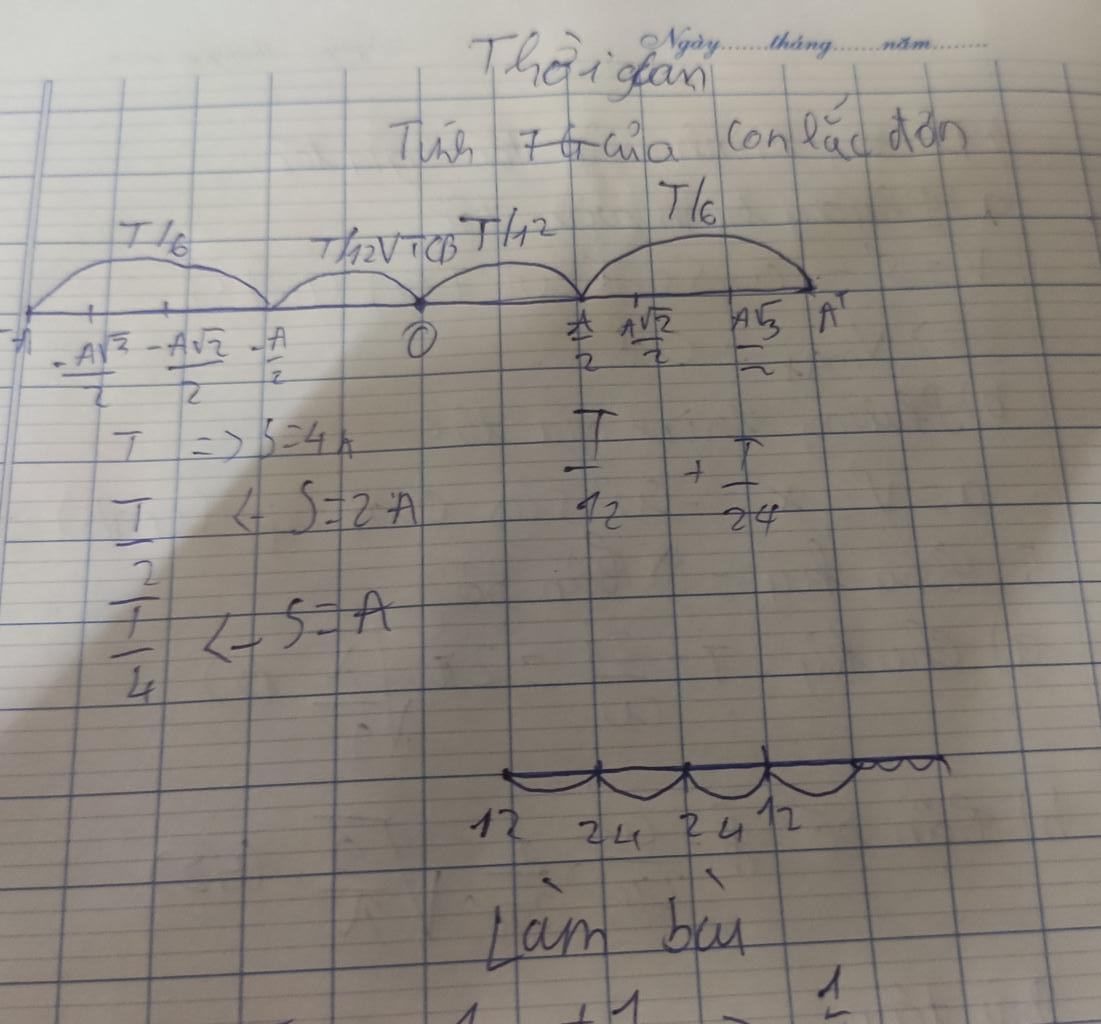 Ngày......tháng......năm........
Thời gian
Tính 7 của con lắc đơn
T/6 T/12 VTCB T/12 T/6
-A -A√3/2 -A√2/2 -A/2 O A/2 A√2/2 A√3/2 A
T => S=4A
T/2 <- S=2A
T/4 <- S=A
T/12 + T/24
12 24 24 12
Làm bài